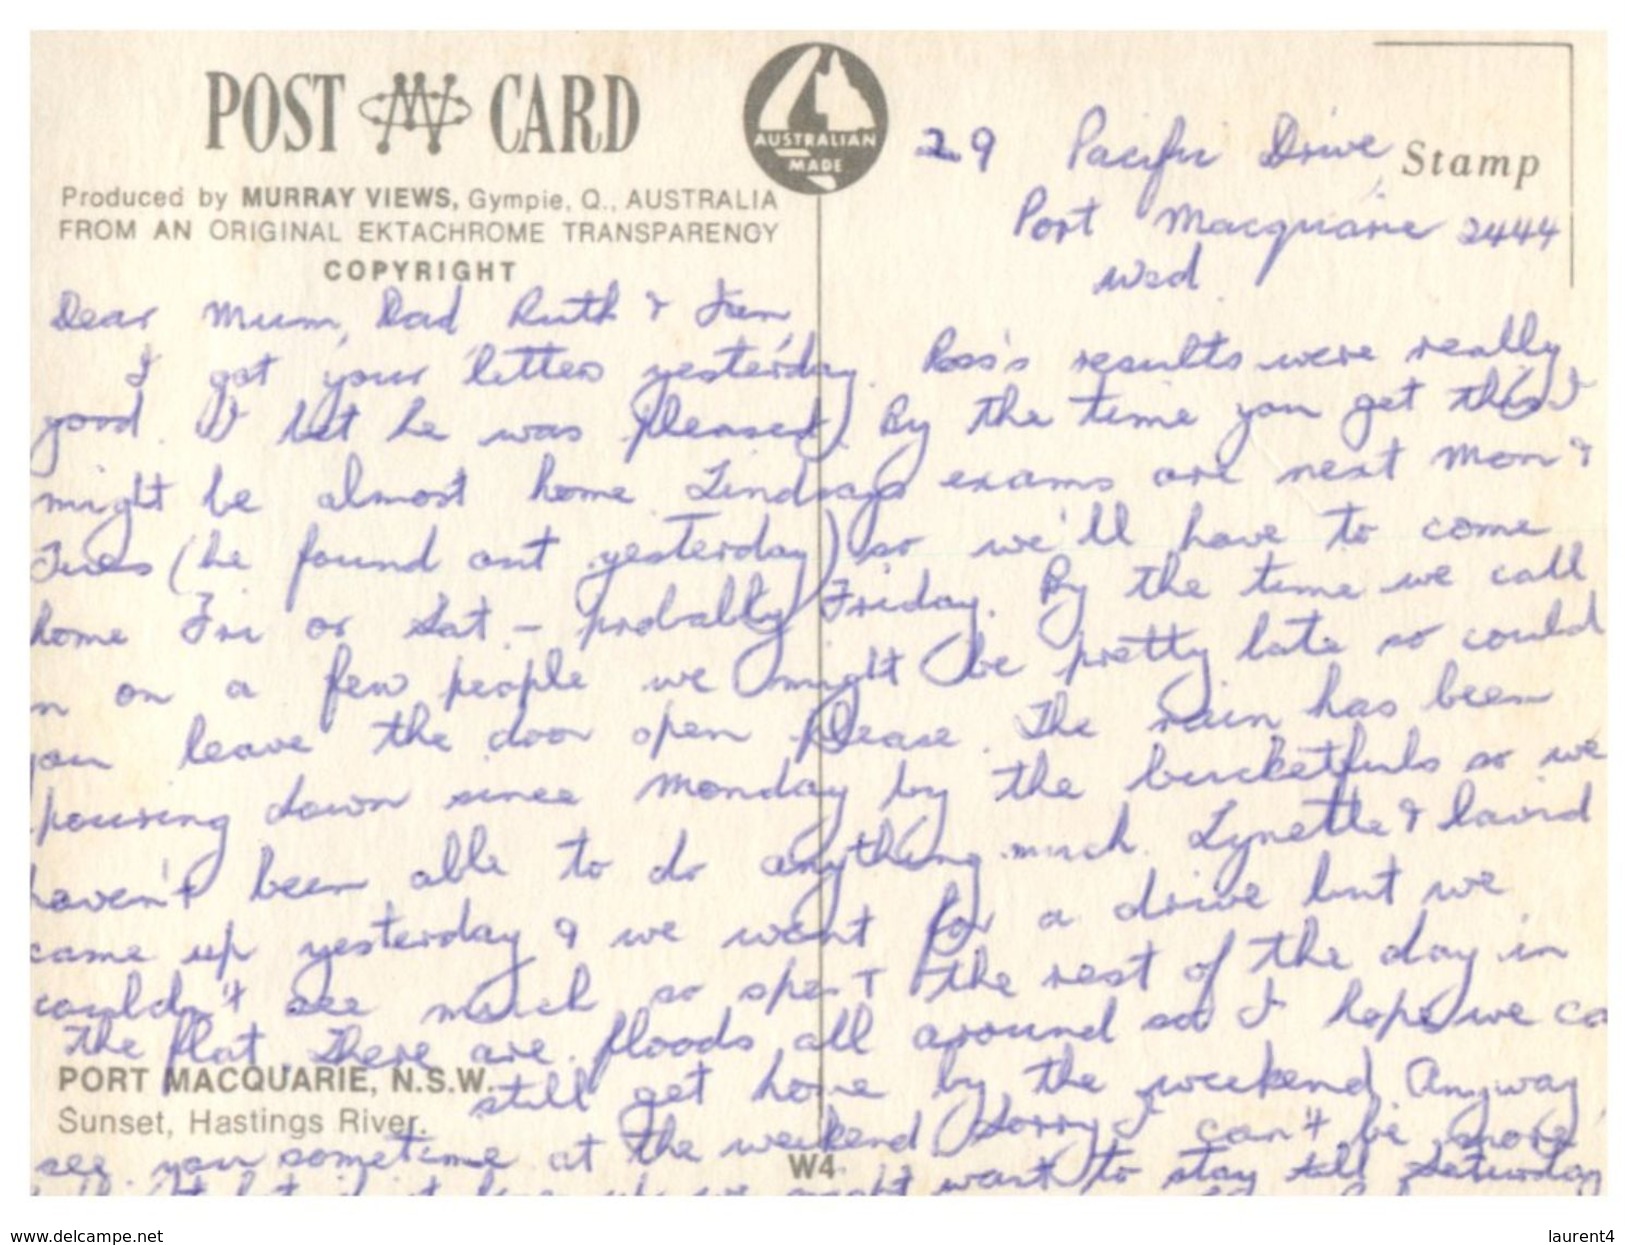 POST CARD
AUSTRALIAN
MADE
Produced by MURRAY VIEWS, Gympie, Q., AUSTRALIA
FROM AN ORIGINAL EKTACHROME TRANSPARENCY
COPYRIGHT
Stamp
29 Pacific Drive
Port Macquarie 2444
Wed.
Dear Mum, Dad Ruth &
I got your letters yesterday. Ross's results were really
good. I bet he was pleased. By the time you get this I
might be almost home. Lindsays exams are next Mon &
Tues (he found out yesterday) so we'll have to come
home Fri or Sat - probably Friday. By the time we call
n on a few people we might be pretty late so could
you leave the door open please. The rain has been
pouring down since Monday by the bucketfuls so we
haven't been able to do anything much. Lynette & David
came up yesterday & we went for a drive but we
couldn't see much so spent the rest of the day in
the flat. There are floods all around so I hope we ca
still get home by the weekend. Anyway
see you sometime at the weekend (Sorry I can't be more
want to stay till Saturday
PORT MACQUARIE, N.S.W.
Sunset, Hastings River.
W4
www.delcampe.net
laurent4